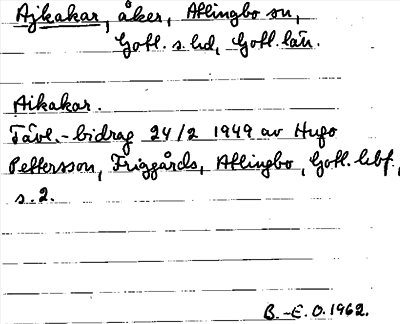 Ajkakar, åker, Atlingbo sn,
Gotl. s. hd, Gotl. län.
Aikakar.
Tävl.-bidrag 24/2 1949 av Hugo
Pettersson, Friggårds, Atlingbo, Gotl. hbf.,
s. 2.
B.-E. O. 1962.